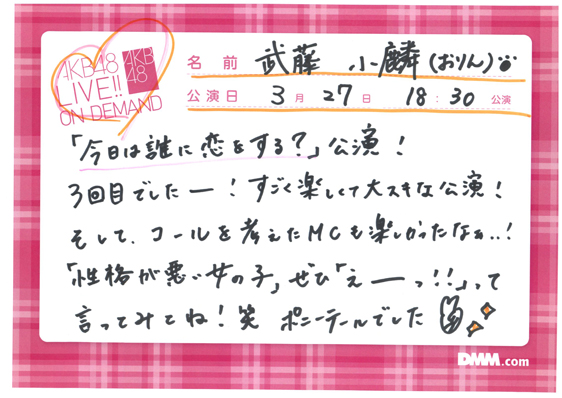 AKB48
LIVE!!
ON DEMAND
AKB
48
名前 武藤 小麟(おりん)
公演日 3月27日 18:30公演
「今日は誰に恋をする?」公演!
3回目でしたー!すごく楽しくて大スキな公演!
そして、コールを考えたMCも楽しかったなぁ..!
「性格が悪い女の子」ぜひ「えーっ!!」って
言ってみてね!笑 ポニーテールでした
DMM.com